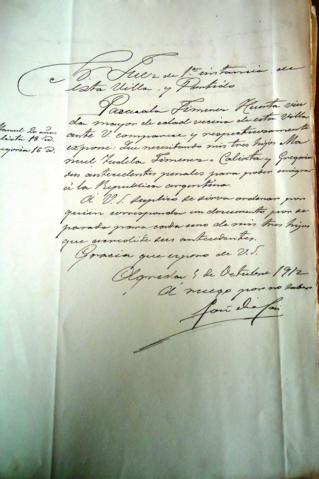 S. Juez de 1ª instancia de
esta Villa y Partido
Pascuala Jimenez Huerta viu
da mayor de edad vecina de esta Villa
ante V. comparece y respetuosamente
expone: Que necesitando mis tres hijos Ma
nuel Tudela Jimenez, Calista y Gregoria
sus antecedentes penales para poder emigrar
á la Republica argentina.
A V.S. suplico se sirva ordenar por
quien corresponda un documento por se
parado para cada uno de mis tres hijos
que acredite sus antecedentes.
Gracia que espero de V.S.
Agreda 5 de Octubre 1912
A ruego por no saber
Manuel
Calista 18
Gregoria 15